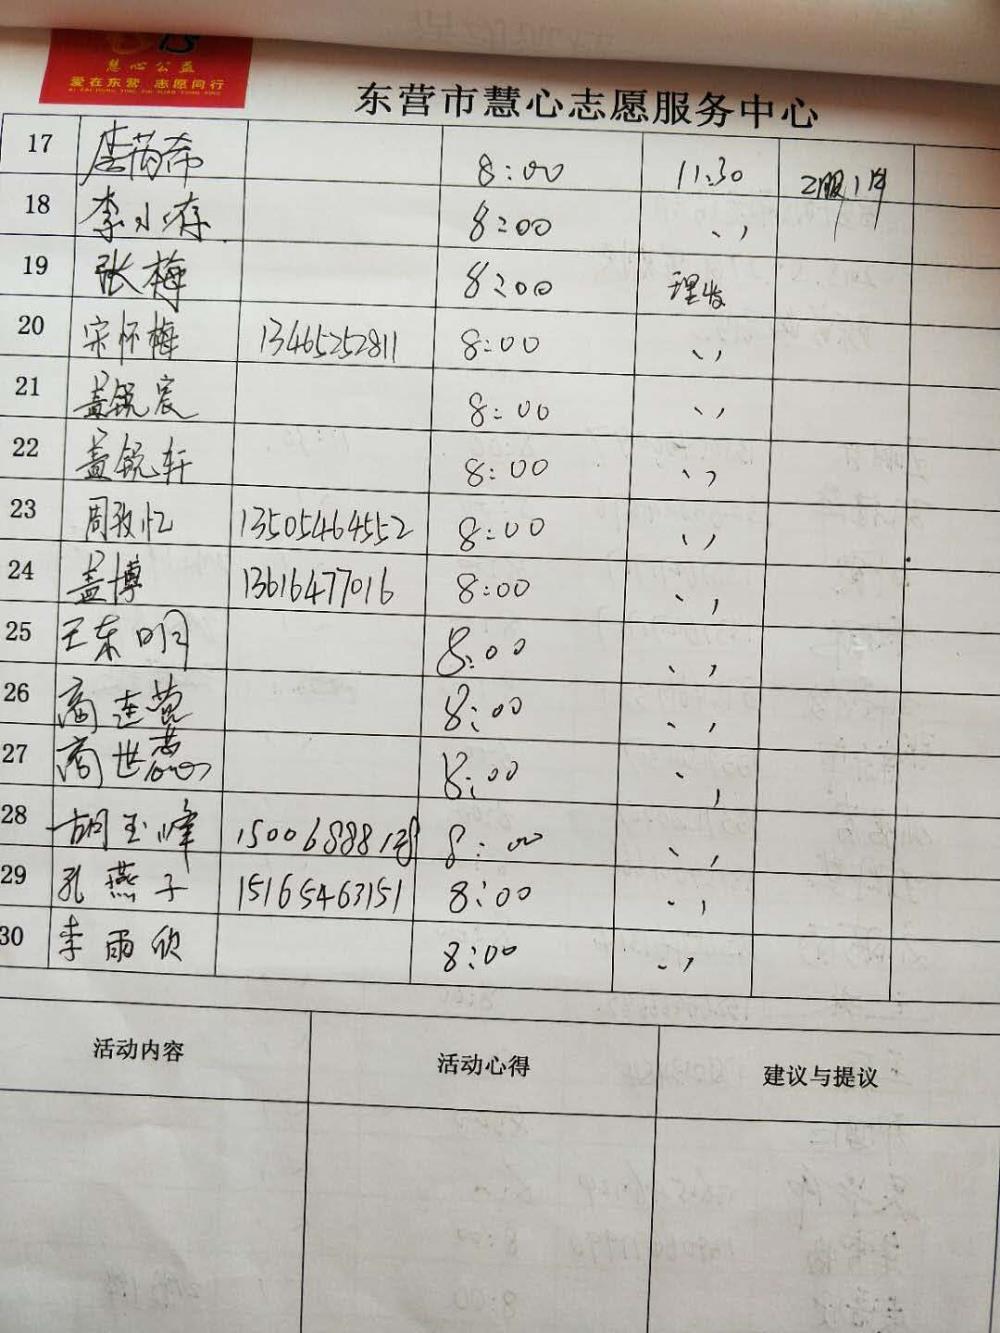 慧心公益
爱在东营 志愿同行
AI ZAI DONG YING ZHI YUAN TONG XING
东营市慧心志愿服务中心
17 李芮希 8:00 11:30
18 李小存 8:00 〃
19 张梅 8:00 理发
20 宋怀梅 13465252811 8:00 〃
21 盖锐宸 8:00 〃
22 盖锐轩 8:00 〃
23 周孜忆 13505464552 8:00 〃
24 盖博 13616477016 8:00 〃
25 王东明 8:00 〃
26 商连营 8:00 〃
27 商世蕊 8:00 〃
28 胡玉峰 8:00 〃
29 孔燕子 15165463151 8:00 〃
30 李雨欣 8:00 〃
活动内容 活动心得 建议与提议